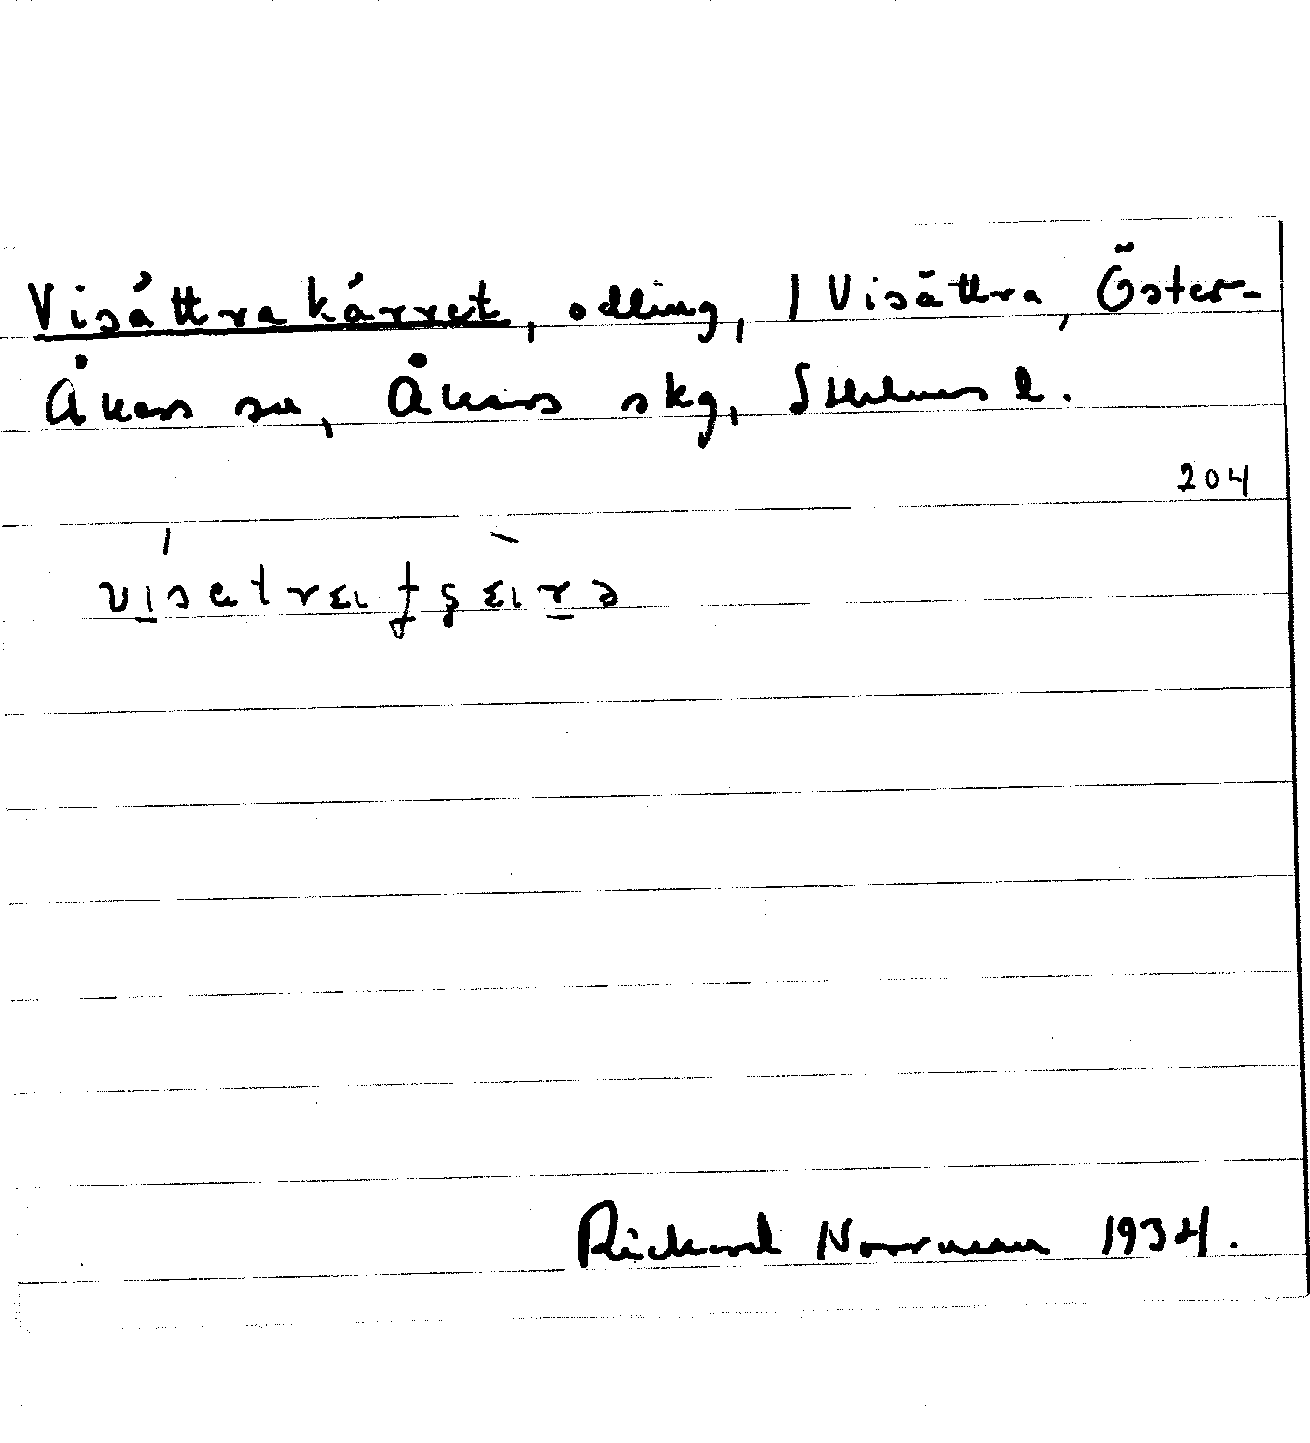 Visättrakärret, odling, / Visättra, Öster-
Åkers sn, Åkers skg, Sthlms l.
204
Rickard Norrman 1934.